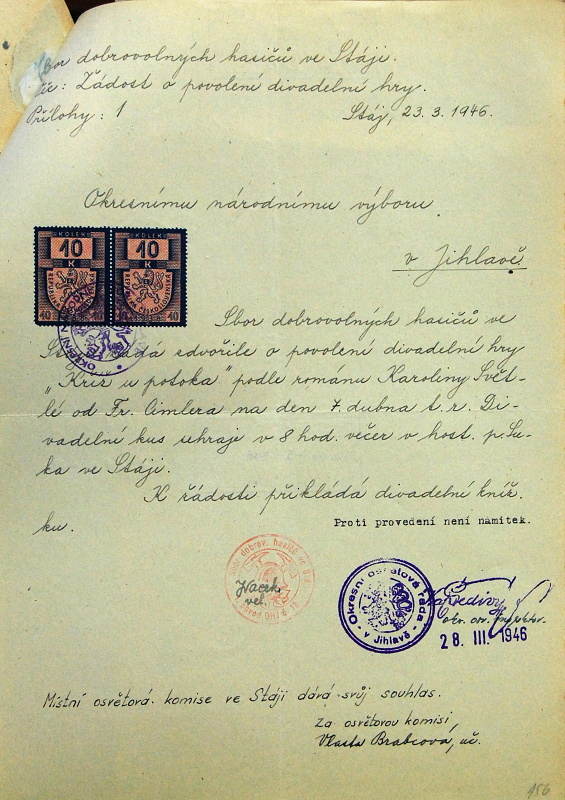 Sbor dobrovolných hasičů ve Stáji.
Žádost o povolení divadelní hry.
Přílohy: 1 Stáj, 23. 3. 1946.
Okresnímu národnímu výboru
v Jihlavě
KOLEK KOLEK
10 10
K K
REPUBLIKA ČESKOSLOVENSKÁ REPUBLIKA ČESKOSLOVENSKÁ
10 10 10 10
OKRESNÍ NÁRODNÍ
Sbor dobrovolných hasičů ve
žádá zdvořile o povolení divadelní hry
„Kříž u potoka" podle románu Karoliny Svět-
lé od Fr. Cimlera na den 7. dubna t. r. Di-
vadelní kus sehraje v 8 hod. večer v host. p. Su-
ka ve Stáji.
K žádosti přikládá divadelní kníž-
ku.
Proti provedení není námitek.
Sbor dobrov. hasičů ve Stáji
Vacek
vel.
Okresní osvětová rada
v Jihlavě
okr. osv.
28. III. 1946
Místní osvětová komise ve Stáji dává svůj souhlas.
Za osvětovou komisi
Vlasta Brabcová, uč.
156